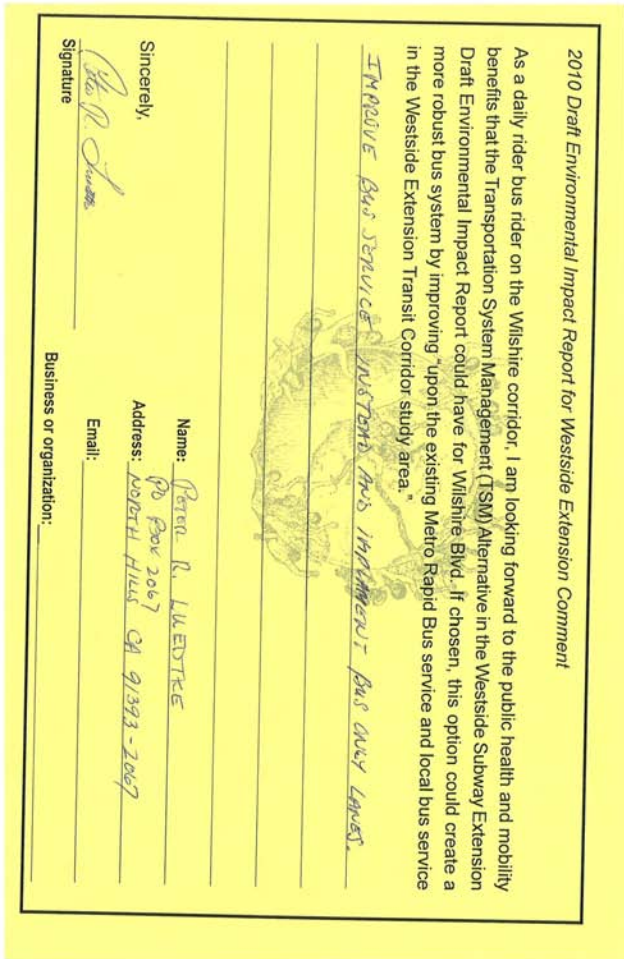 2010 Draft Environmental Impact Report for Westside Extension Comment
As a daily rider bus rider on the Wilshire corridor, I am looking forward to the public health and mobility
benefits that the Transportation System Management (TSM) Alternative in the Westside Subway Extension
Draft Environmental Impact Report could have for Wilshire Blvd. If chosen, this option could create a
more robust bus system by improving "upon the existing Metro Rapid Bus service and local bus service
in the Westside Extension Transit Corridor study area."
IMPROVE BUS SERVICE INSTEAD AND IMPLEMENT BUS ONLY LANES.
Sincerely,
Signature
Name: PETER R. LUEDTKE
PO BOX 2067
Address: NORTH HILLS CA 91393-2067
Email:
Business or organization: